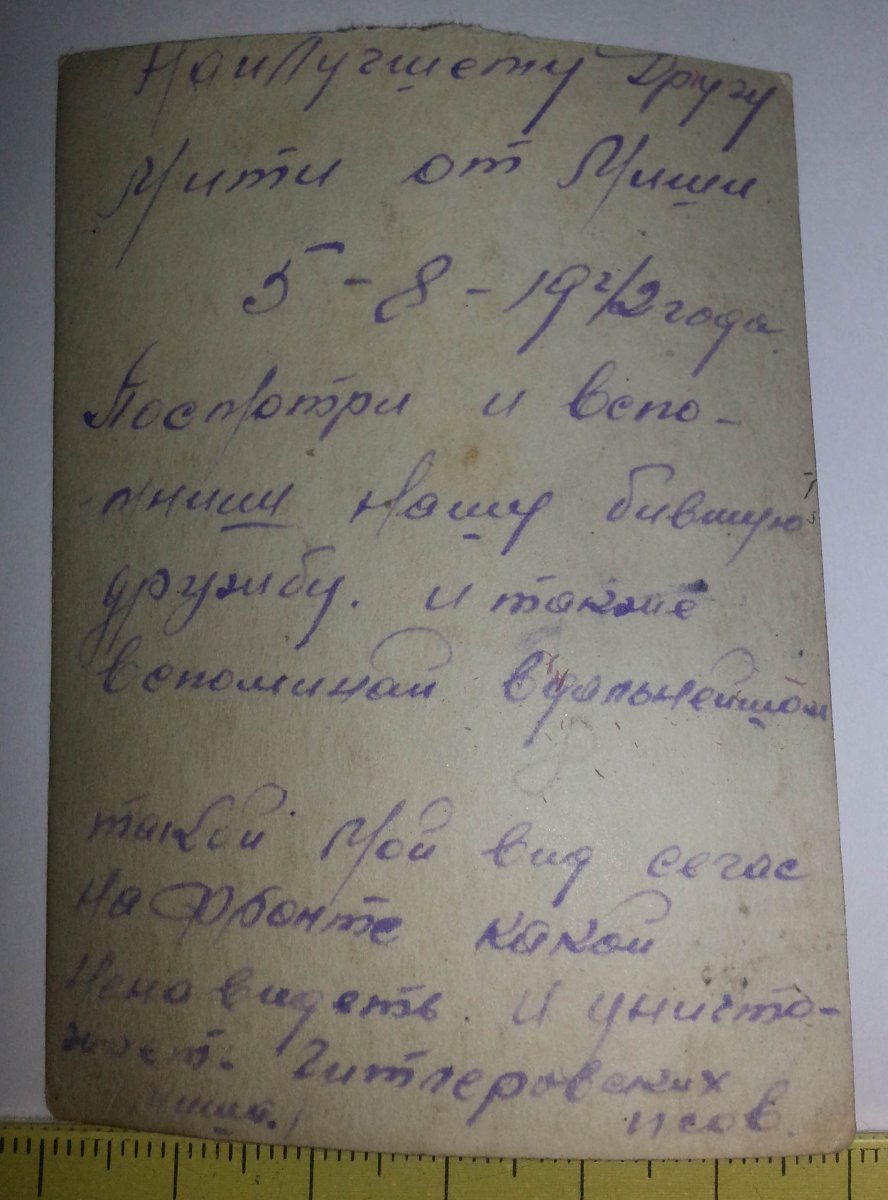 Наилучшему Другу
Мити от Миши.
5-8-1942 года.
Посмотри и вспо-
мниш нашу бившую
дружбу. и также
вспоминай вдальнейшом
такой мой вид сечас
на фронте какой
ненавидеть. и уничто-
жает. Гитлеровских
псов.
(Миша.)